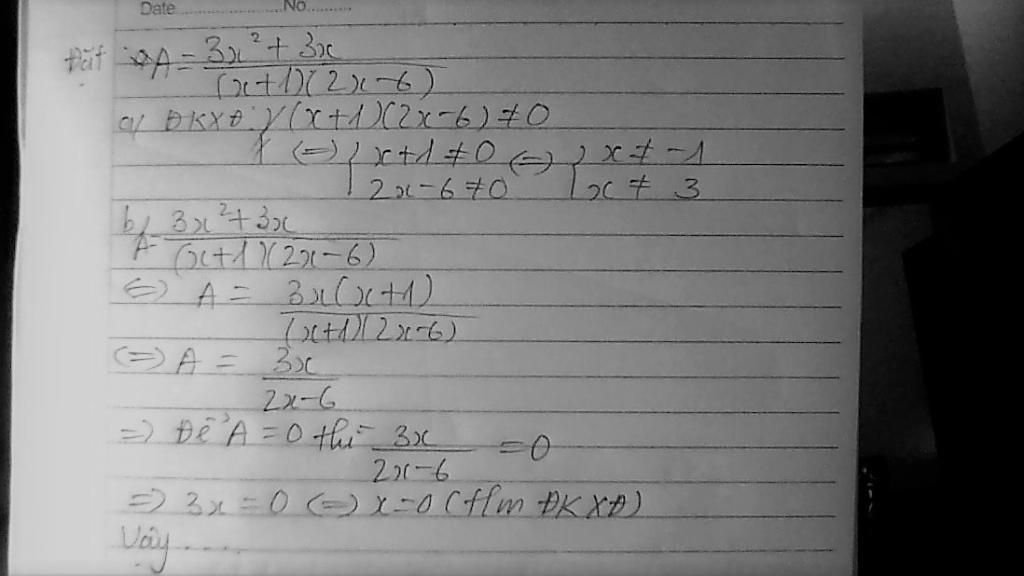 Date ........ No ........
Đặt A = 3x² + 3x / (x+1)(2x-6)
a/ ĐKXĐ: (x+1)(2x-6) ≠ 0
(=) { x+1 ≠ 0 (=) { x ≠ -1
2x-6 ≠ 0 x ≠ 3
b/ A = 3x² + 3x / (x+1)(2x-6)
(=) A = 3x(x+1) / (x+1)(2x-6)
(=) A = 3x / 2x-6
=) Để A = 0 thì 3x / 2x-6 = 0
=) 3x = 0 (=) x = 0 (t/m ĐKXĐ)
Vậy ....